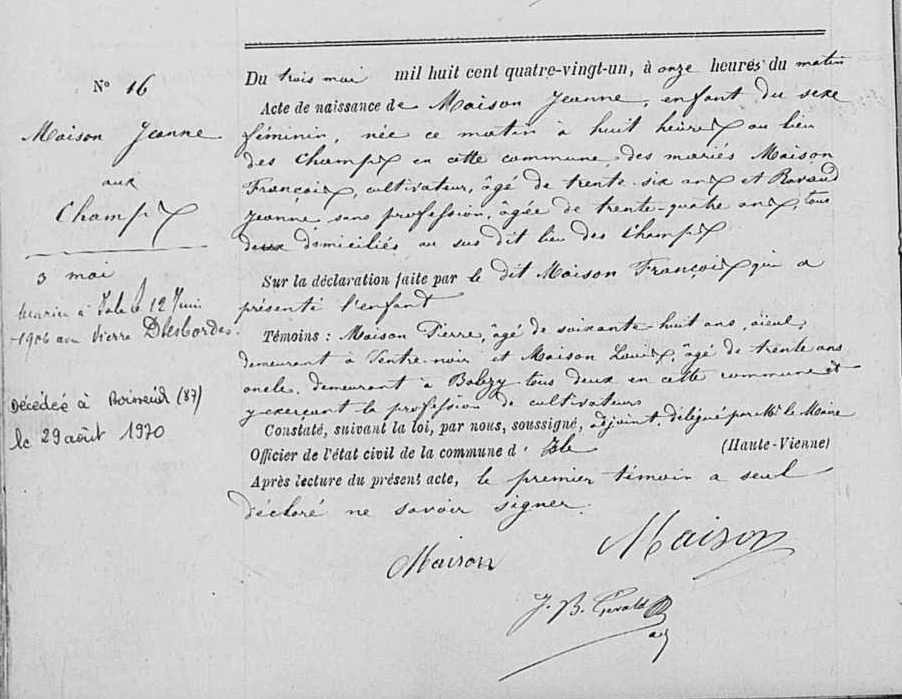 N° 16
Maison Jeanne
aux
Champs
3 mai
Mariée à Isle le 12 Juin
1906 avec Pierre Desbordes.
Décédée à Boisseuil (87)
le 29 août 1970
Du trois mai mil huit cent quatre-vingt-un, à onze heures du matin
Acte de naissance de Maison Jeanne, enfant du sexe
féminin, née ce matin à huit heures au lieu
des Champs en cette commune, des mariés Maison
François, cultivateur, âgé de trente-six ans et Ravaud
Jeanne, sans profession, âgée de trente-quatre ans, tous
deux domiciliés au sus dit lieu des Champs
Sur la déclaration faite par le dit Maison François qui a
présenté l'enfant
Témoins : Maison Pierre, âgé de soixante huit ans, aïeul,
demeurant à Ventre-noir et Maison Louis, âgé de trente ans
oncle, demeurant à Balézy tous deux en cette commune et
y exerçant la profession de cultivateurs
Constaté, suivant la loi, par nous, soussigné, adjoint, délégué par Mr le Maire
Officier de l'état civil de la commune d' Isle (Haute-Vienne)
Après lecture du présent acte, le premier témoin a seul
déclaré ne savoir signer.
Maison Maison
J. B.